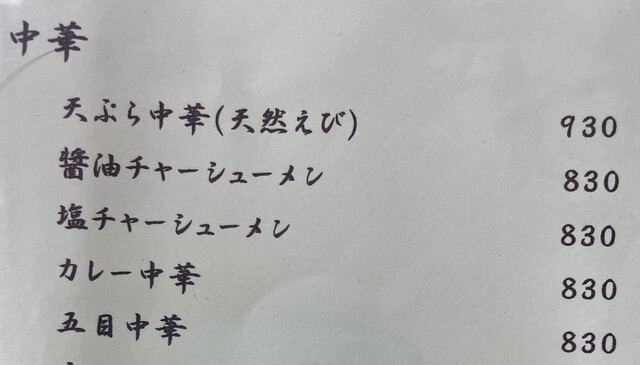 中華
天ぷら中華(天然えび) 930
醬油チャーシューメン 830
塩チャーシューメン 830
カレー中華 830
五目中華 830